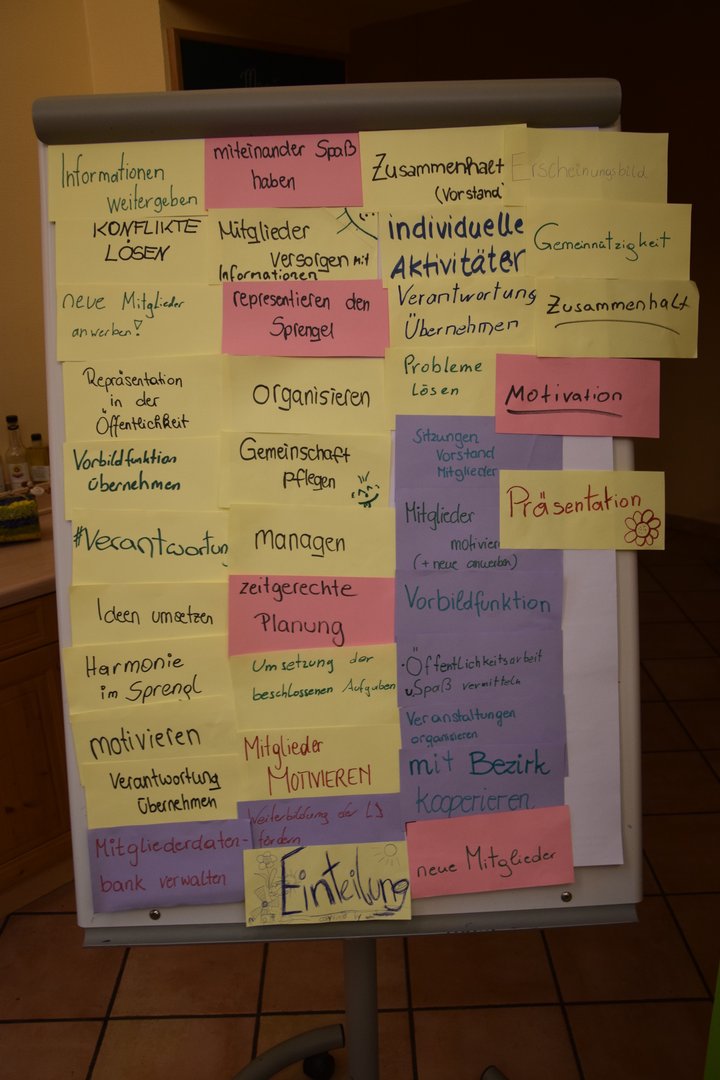 Informationen
weitergeben
KONFLIKTE
LÖSEN
neue Mitglieder
anwerben!
Repräsentation
in der
Öffentlichkeit
Vorbildfunktion
übernehmen
#Verantwortun
Ideen umsetzen
Harmonie
im Sprengl
motivieren
Verantwortung
übernehmen
Mitgliederdaten-
bank verwalten
miteinander Spaß
haben
Mitglieder
Versorgen mit
Informationen
representieren den
Sprengel
Organisieren
Gemeinschaft
pflegen
managen
zeitgerechte
Planung
Umsetzung der
beschlossenen Aufgaben
Mitglieder
MOTIVIEREN
Weiterbildung der LJ
fördern
Einteilung
Zusammenhalt
(Vorstand)
individuelle
Aktivitäten
Verantwortung
Übernehmen
Probleme
lösen
Sitzungen
Vorstand
Mitglieder
Mitglieder
motivieren
(+ neue anwerben)
Vorbildfunktion
Öffentlichkeitsarbeit
Spaß vermitteln
Veranstaltungen
organisieren
mit Bezirk
kooperieren
neue Mitglieder
Erscheinungsbild
Gemeinnützigkeit
Zusammenhalt
Motivation
Präsentation